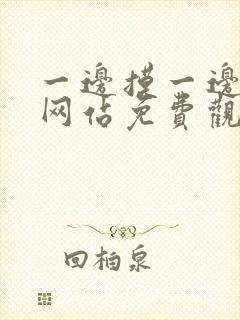 一邊摸一邊
网佔免費觀
回柏泉